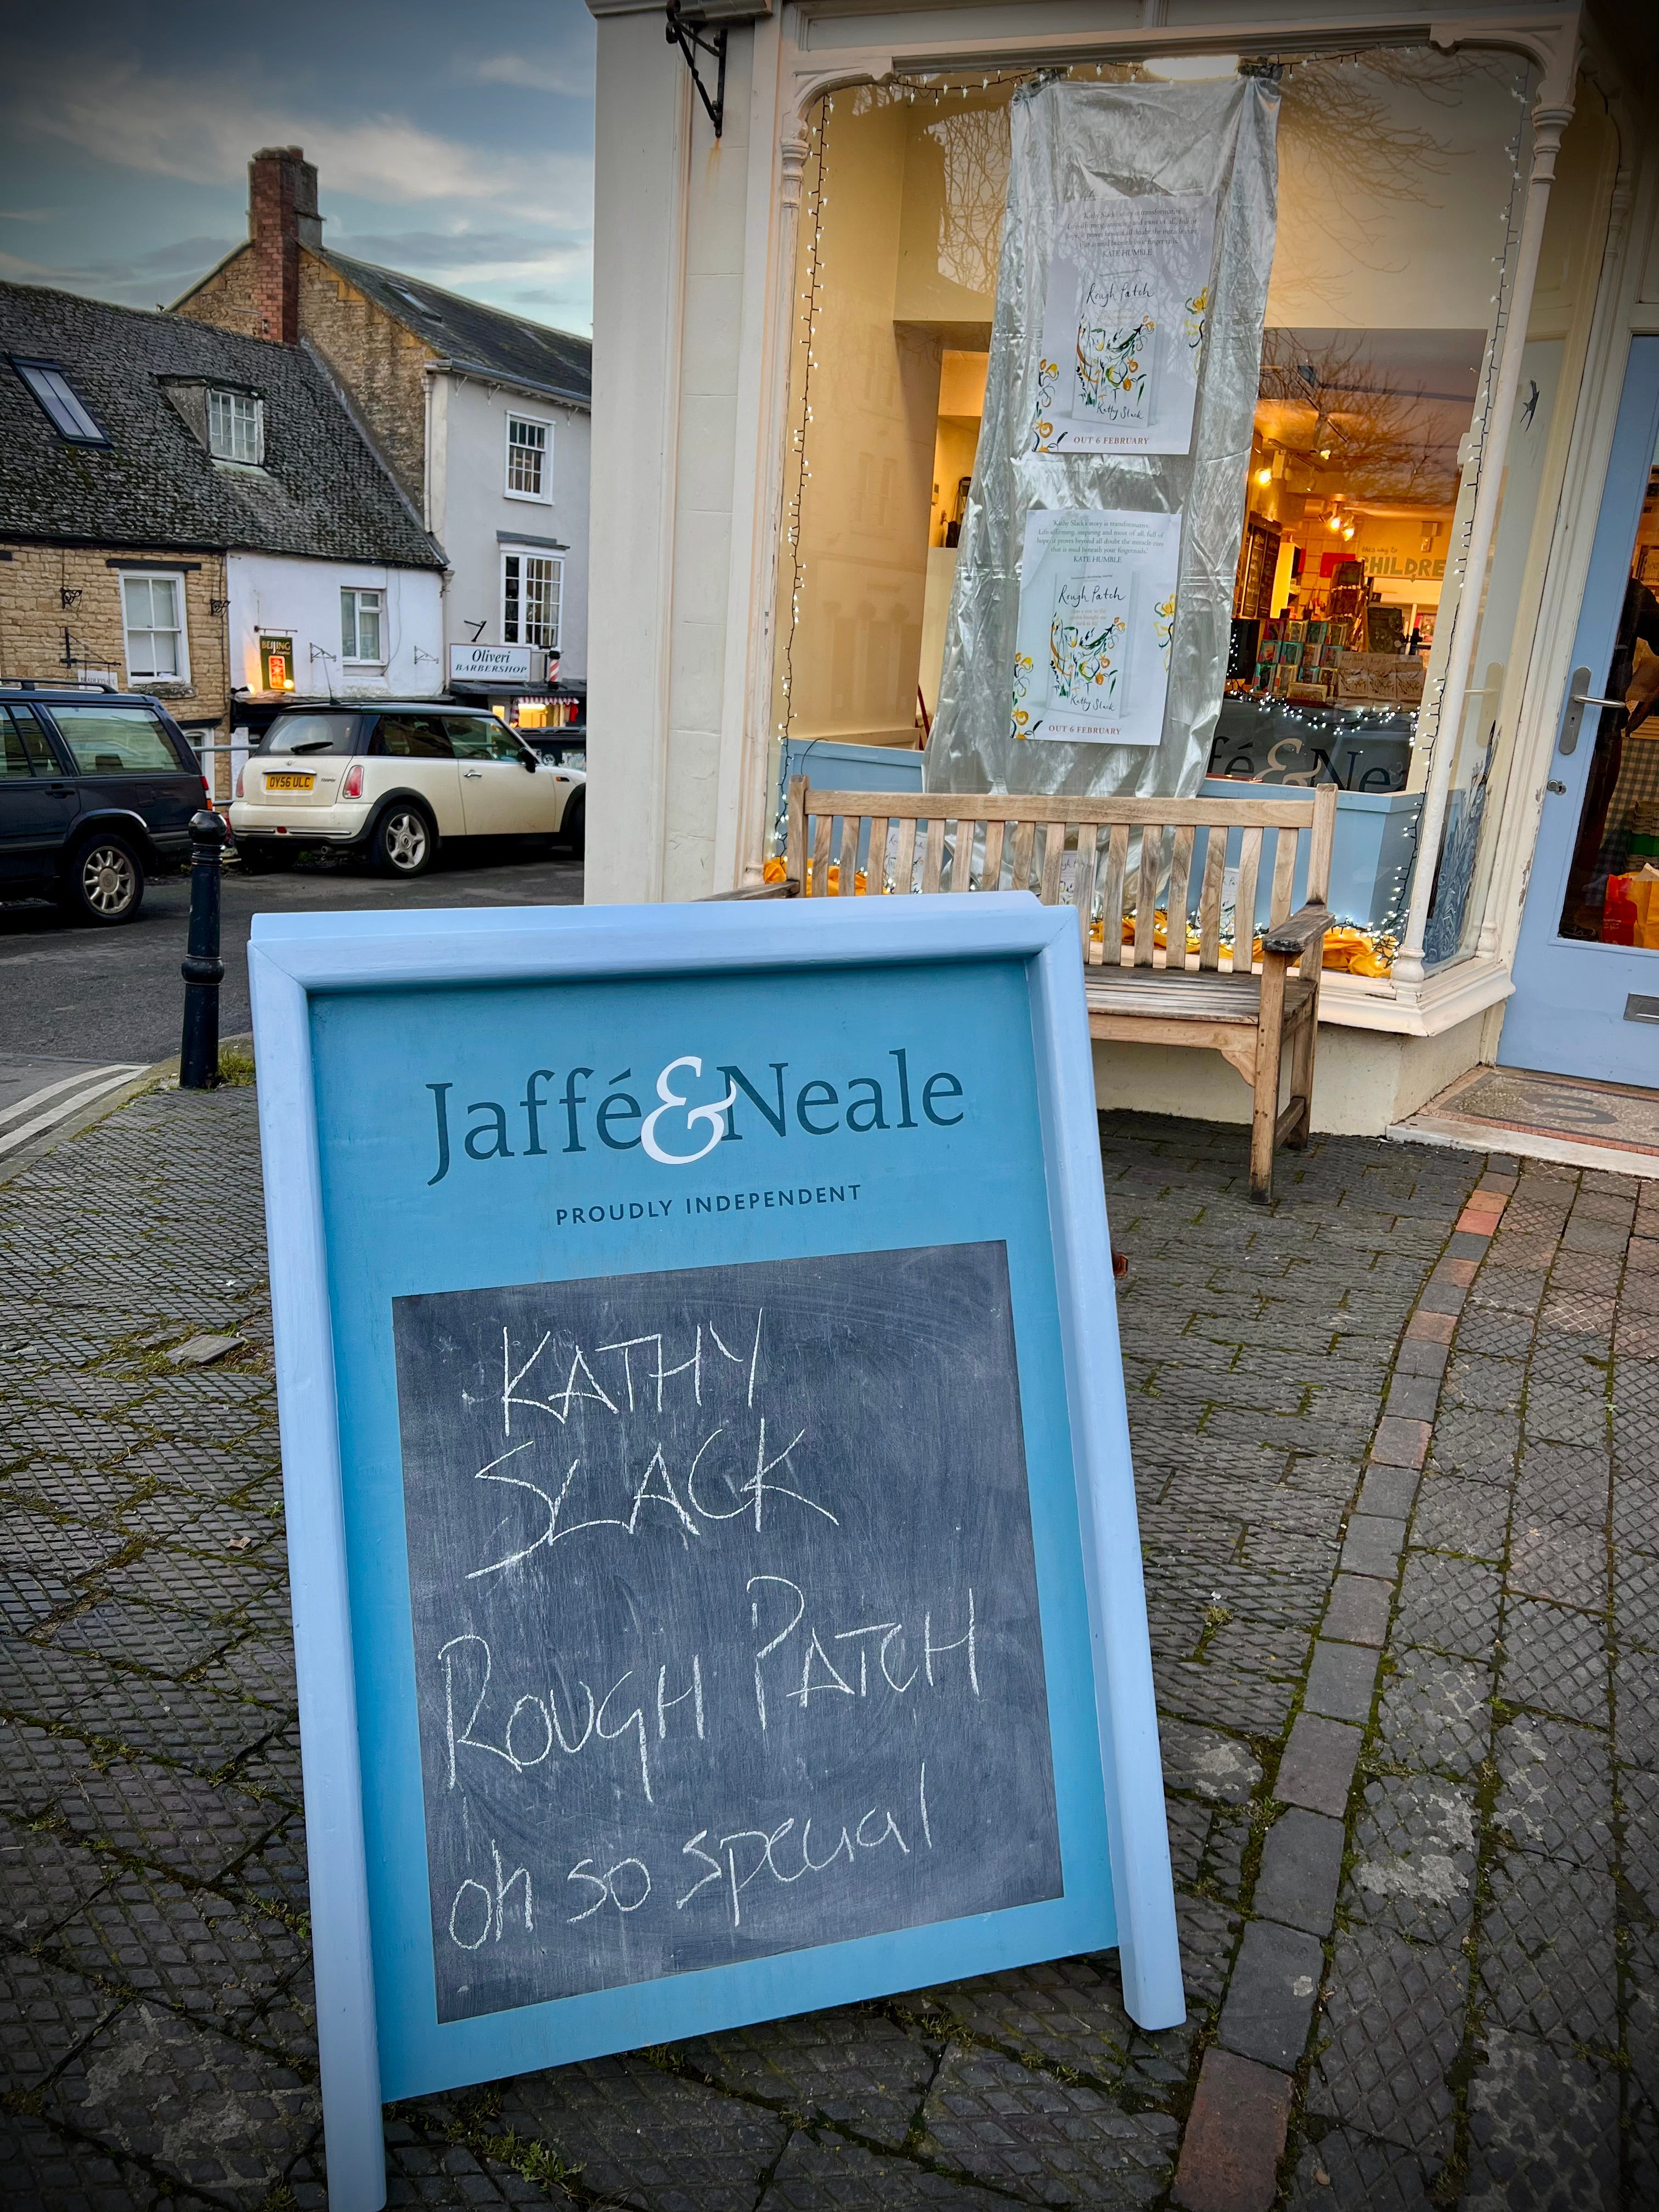 Jaffé & Neale
PROUDLY INDEPENDENT
KATHY
SLACK
ROUGH PATCH
oh so special
'Kathy Slack's story is transformative.
Life-affirming, inspiring and most of all, full of
hope, it proves beyond all doubt the miracle cure
that is mud beneath your fingernails.'
KATE HUMBLE
Rough Patch
Kathy Slack
OUT 6 FEBRUARY
'Kathy Slack's story is transformative.
Life-affirming, inspiring and most of all, full of
hope, it proves beyond all doubt the miracle cure
that is mud beneath your fingernails.'
KATE HUMBLE
Rough Patch
Kathy Slack
OUT 6 FEBRUARY
this way to
CHILDRE
fé & Ne
BEIJING
Oliveri
BARBERSHOP
OY56 ULC